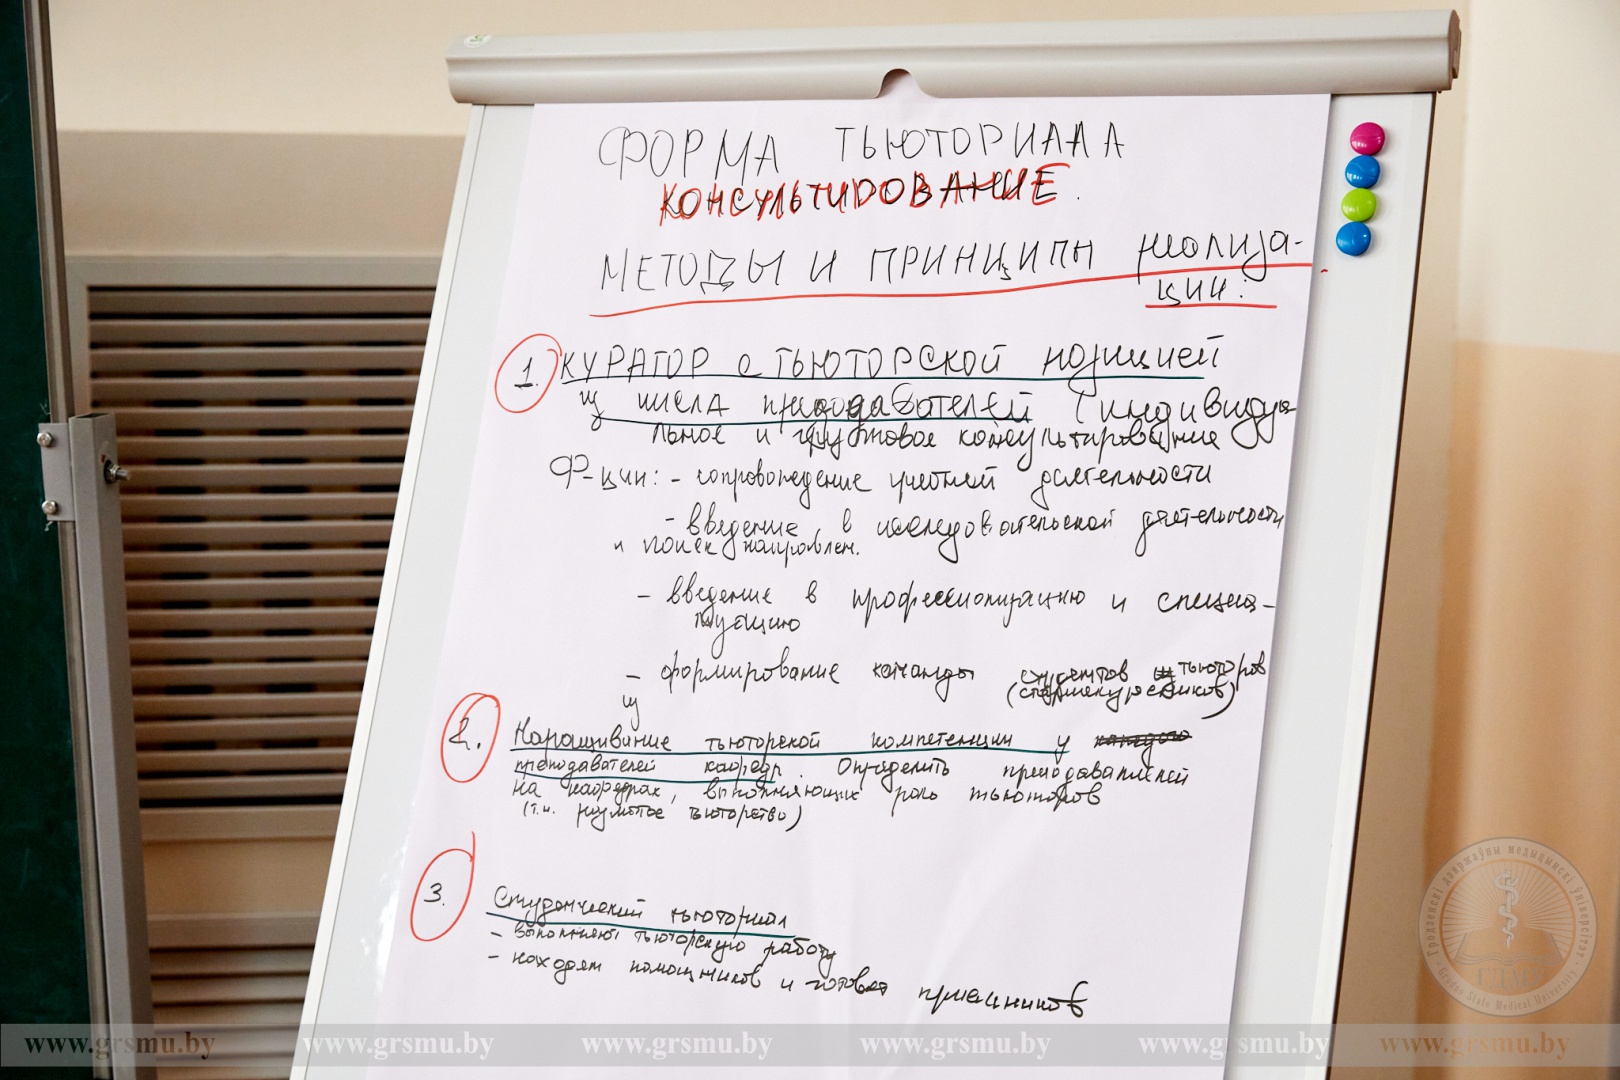 ФОРМА ТЬЮТОРИАЛА
КОНСУЛЬТИРОВАНИЕ.
МЕТОДЫ И ПРИНЦИПЫ реализа-
ции:
1. КУРАТОР с ТЬЮТОРСКОЙ позицией
из числа преподавателей (индивидуа-
льное и групповое консультирование
Ф-ции: - сопровождение учебной деятельности
- введение в исследовательской деятельности
и поиск направлен.
- введение в профессионализацию и специа-
лизацию
- формирование команды студентов тьюторов
(старшекурсников)
2. Наращивание тьюторской компетенции у каждого
преподавателей кафедр. Определить преподавателей
на кафедрах, выполняющих роль тьюторов
(т.н. тьюторство)
3. Студенческий тьюториал
- выполняют тьюторскую работу
- находят помощников и готовят приемников
Гродзенскі дзяржаўны медыцынскі ўніверсітэт
ГДМУ
Grodno State Medical University
www.grsmu.by www.grsmu.by www.grsmu.by www.grsmu.by www.grsmu.by www.grsmu.by